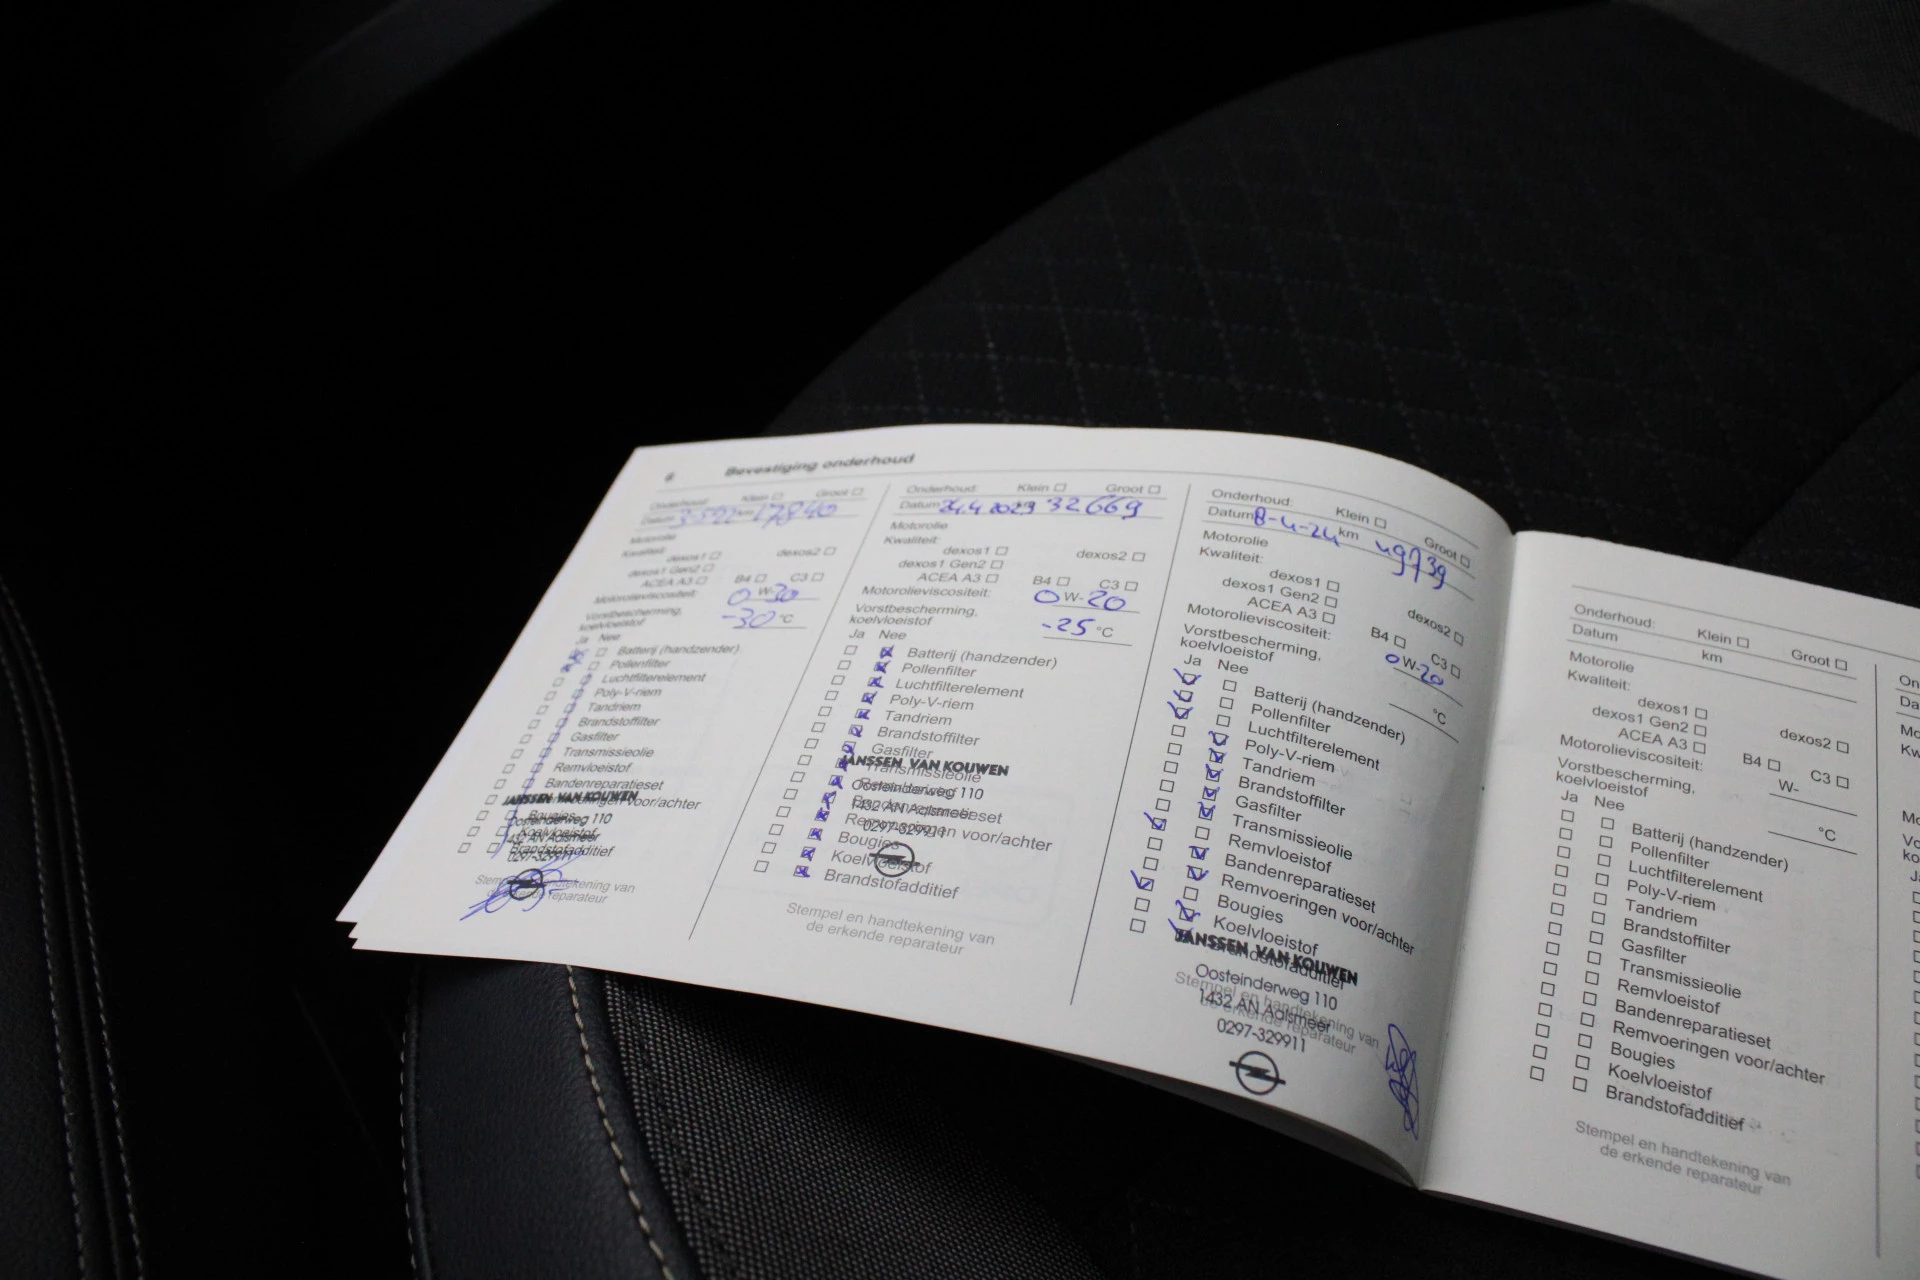 6 Bevestiging onderhoud
Onderhoud: Klein Groot
Datum 3-5-22 km 17840
Motorolie
Kwaliteit:
dexos1 dexos2
dexos1 Gen2
ACEA A3 B4 C3
Motorolieviscositeit: 0 W-30
Vorstbescherming,
koelvloeistof -30 °C
Ja Nee
Batterij (handzender)
Pollenfilter
Luchtfilterelement
Poly-V-riem
Tandriem
Brandstoffilter
Gasfilter
Transmissieolie
Remvloeistof
Bandenreparatieset
Remvoeringen voor/achter
Bougies
Koelvloeistof
Brandstofadditief
JANSSEN VAN KOUWEN
Oosteinderweg 110
1432 AN Aalsmeer
0297-329911
Stempel en handtekening van
de erkende reparateur
Onderhoud: Klein Groot
Datum 24.4.2023 32669
Motorolie
Kwaliteit:
dexos1 dexos2
dexos1 Gen2
ACEA A3 B4 C3
Motorolieviscositeit: 0 W-20
Vorstbescherming,
koelvloeistof -25 °C
Ja Nee
Batterij (handzender)
Pollenfilter
Luchtfilterelement
Poly-V-riem
Tandriem
Brandstoffilter
Gasfilter
Transmissieolie
Remvloeistof
Bandenreparatieset
Remvoeringen voor/achter
Bougies
Koelvloeistof
Brandstofadditief
JANSSEN VAN KOUWEN
Oosteinderweg 110
1432 AN Aalsmeer
0297-329911
Stempel en handtekening van
de erkende reparateur
Onderhoud: Klein Groot
Datum 8-4-24 km 49739
Motorolie
Kwaliteit:
dexos1 dexos2
dexos1 Gen2
ACEA A3 B4 C3
Motorolieviscositeit: 0 W-20
Vorstbescherming,
koelvloeistof °C
Ja Nee
Batterij (handzender)
Pollenfilter
Luchtfilterelement
Poly-V-riem
Tandriem
Brandstoffilter
Gasfilter
Transmissieolie
Remvloeistof
Bandenreparatieset
Remvoeringen voor/achter
Bougies
Koelvloeistof
Brandstofadditief
JANSSEN VAN KOUWEN
Oosteinderweg 110
1432 AN Aalsmeer
0297-329911
Stempel en handtekening van
de erkende reparateur
Onderhoud: Klein Groot
Datum km
Motorolie
Kwaliteit:
dexos1 dexos2
dexos1 Gen2
ACEA A3 B4 C3
Motorolieviscositeit: W-
Vorstbescherming,
koelvloeistof °C
Ja Nee
Batterij (handzender)
Pollenfilter
Luchtfilterelement
Poly-V-riem
Tandriem
Brandstoffilter
Gasfilter
Transmissieolie
Remvloeistof
Bandenreparatieset
Remvoeringen voor/achter
Bougies
Koelvloeistof
Brandstofadditief
Stempel en handtekening van
de erkende reparateur